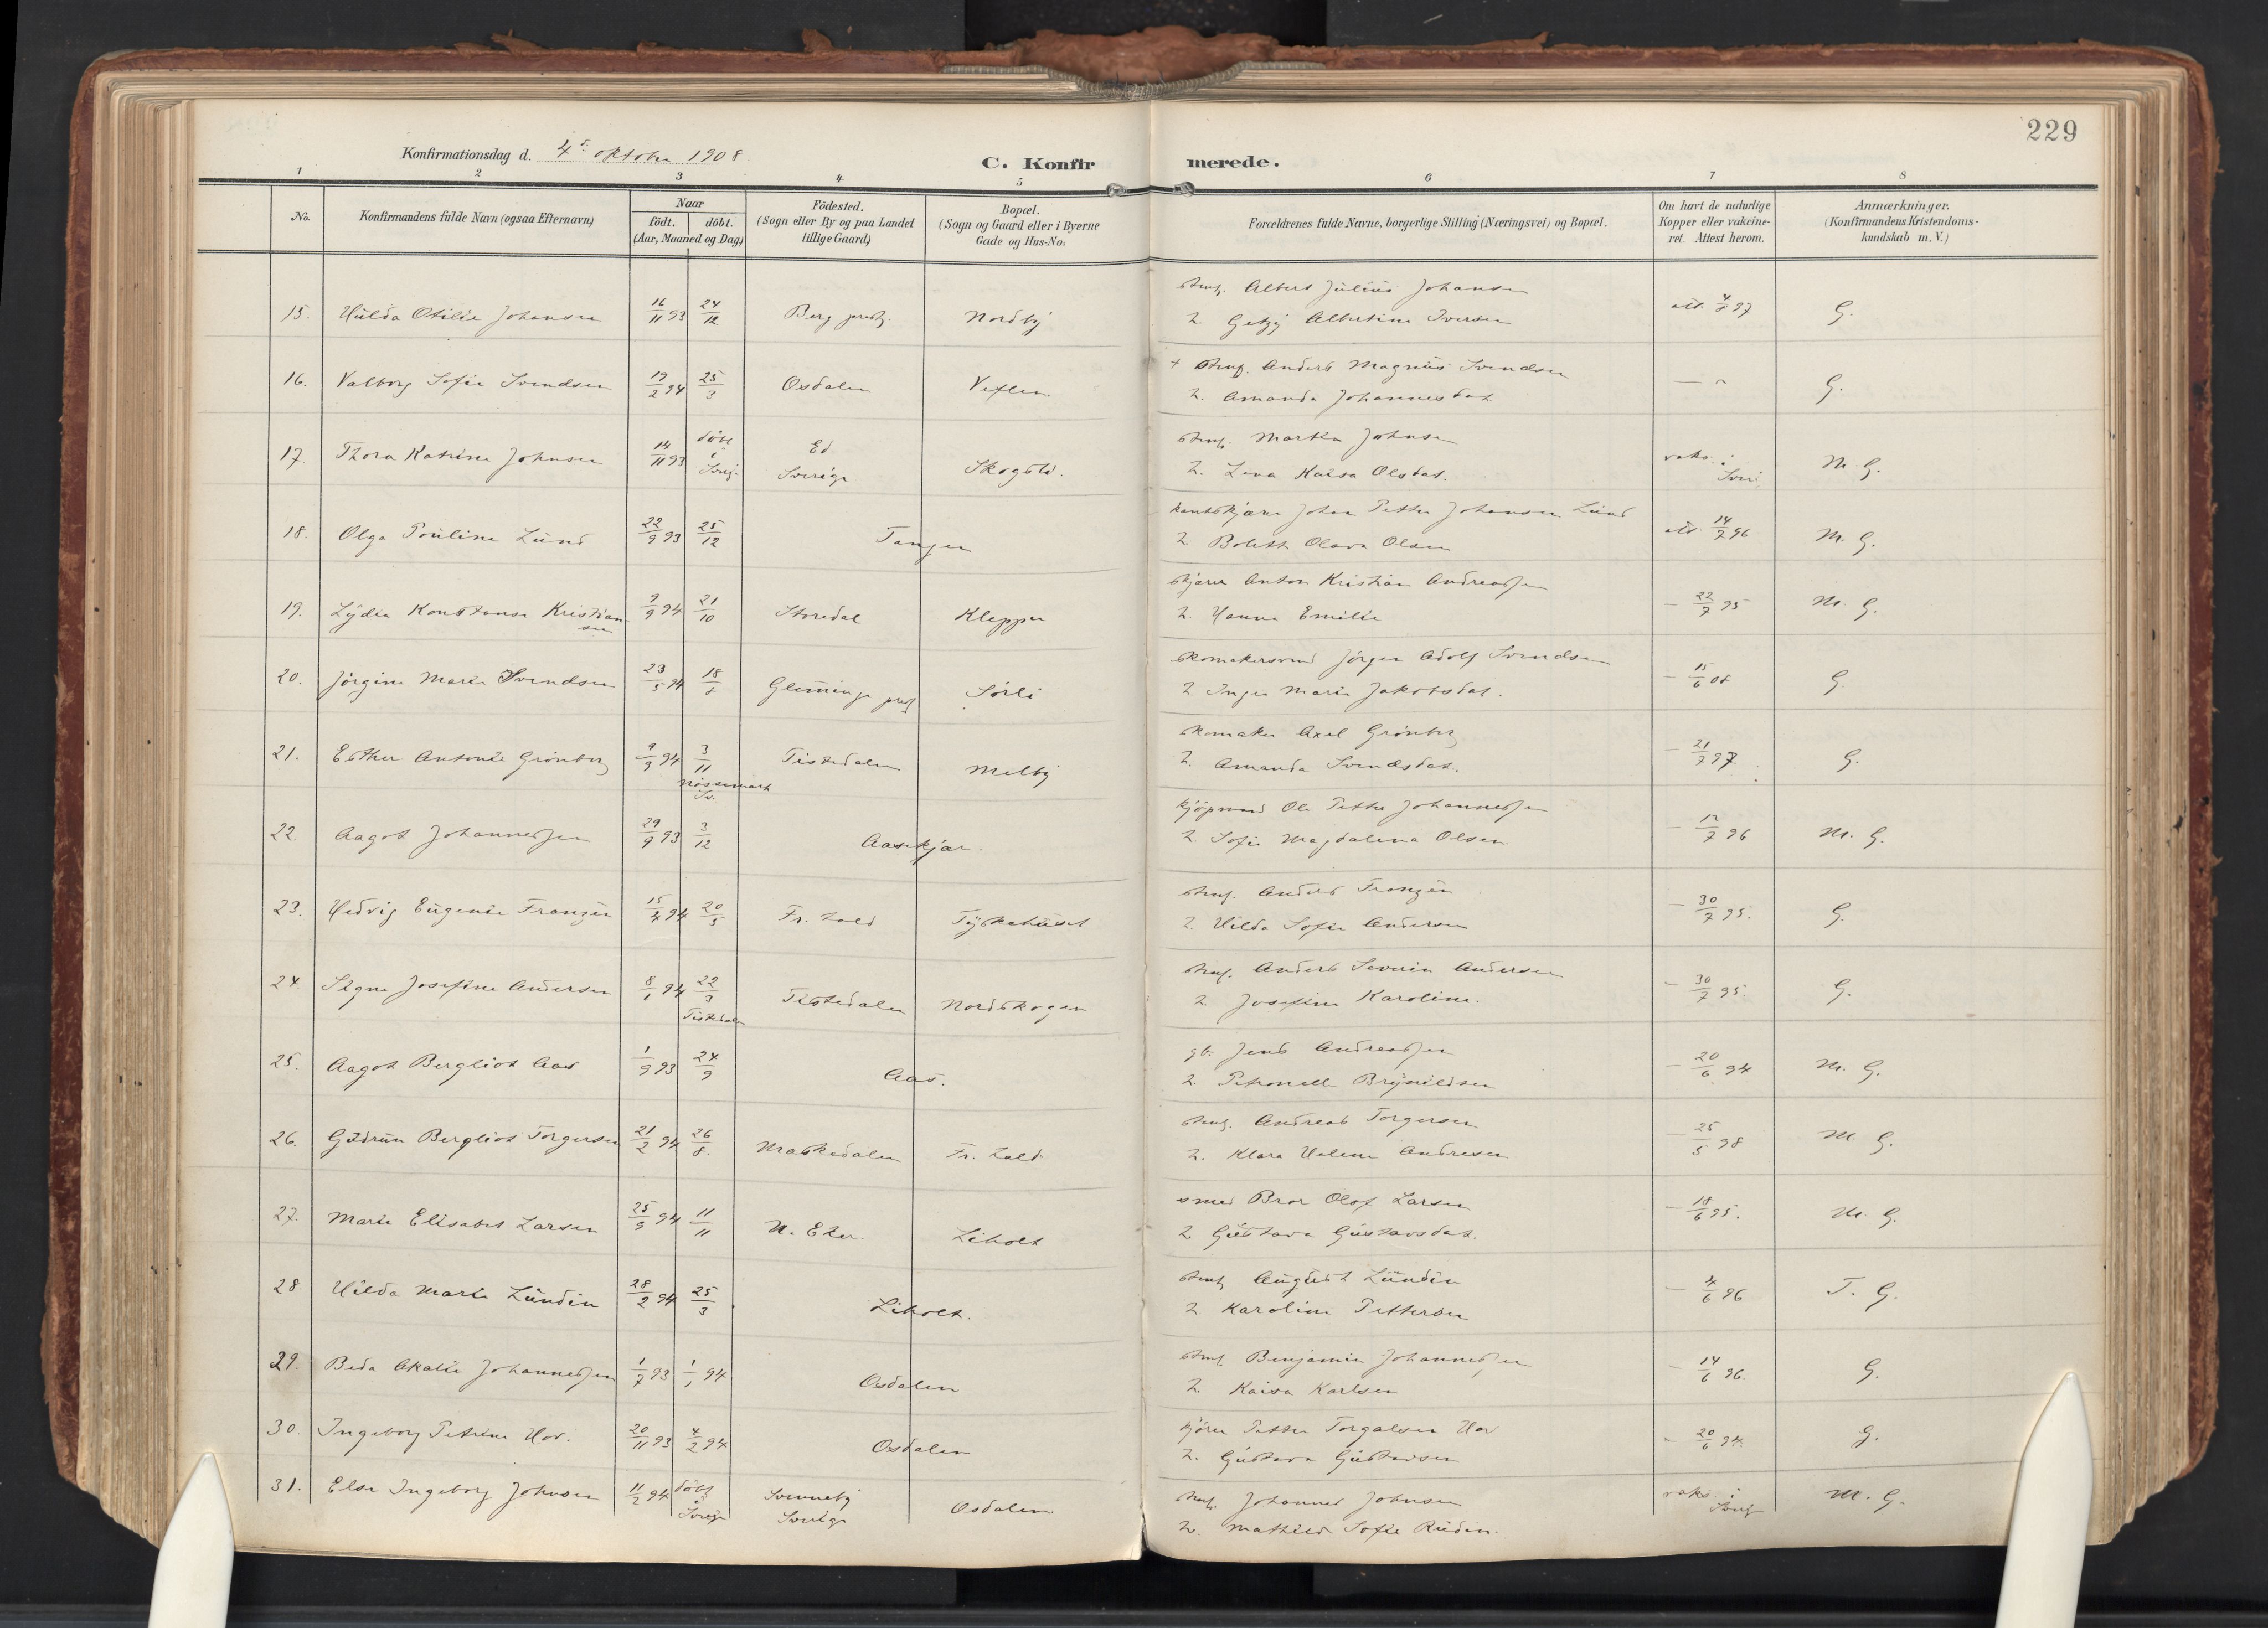 229
Konfirmationsdag d. 4de oktober 1908.
C. Konfirmerede.
1 2 3 4 5 6 7 8
No. Konfirmandens fulde Navn (ogsaa Efternavn) Naar födt. döbt. (Aar, Maaned og Dag) Födested. (Sogn eller By og paa Landet tillige Gaard) Bopæl. (Sogn og Gaard eller i Byerne Gade og Hus-No. Forældrenes fulde Navne, borgerlige Stilling (Næringsvei) og Bopæl. Om havt de naturlige Kopper eller vakcineret. Attest herom. Anmærkninger. (Konfirmandens Kristendomskundskab m. V.)
15. Hilda Otilie Johansen 16/11 93 24/12 Berg prestg. Nordby Albert Julius Johansen G.
2. Albertine Iversen
16. Valborg Sofie Svendsen 19/2 94 25/3 Osdalen Veflen + Anders Magnus Svendsen — " G.
2. Amanda Johannesdat.
17. Thora Katrine Johnsen 14/11 93 döbt i Sverig. Ed Sverige Skogsti. Martin Johnsen vaks. i Sveri. M. G.
2. Lena Kaisa Olsdat.
18. Olga Pouline Lund 22/9 93 25/12 Tangen Johan Petter Johansen Lund att. 14/7 96 M. G.
2. Bolette Olava Olsen
19. Lydia Konstanse Kristiansen 9/9 94 21/10 Storedal Klepper skjærer Anton Kristian Andreassen — 22/7 95 M. G.
2. Hanna Emilie
20. Jörgine Marie Svendsen 23/5 94 18/8 Glemminge prestg Sörli skomakersvend Jörgen Adolf Svendsen — 15/6 08 G.
2. Inger Marie Jakobsdat.
21. Esther Antonie Grönberg 9/9 94 3/11 Nössemark Sv. Tistedalen Melby skomaker Axel Grönberg — 21/7 97 G.
2. Amanda Svendsdat.
22. Aagot Johannessen 29/9 93 3/12 Aaserkjær. kjöpmand Ole Petter Johannessen — 12/7 96 M. G.
2. Sofie Magdalena Olsen
23. Hedvig Eugenie Franzén 15/4 94 20/5 Fr. hald Tyskehuset Anders Franzén — 30/7 95. G.
2. Hilda Sofie Andersen
24. Signe Josefine Andersen 8/1 94 22/3 Tistedalen Tistedalen Nordskogen Anders Severin Andersen — 30/7 95. G.
2. Josefine Karoline.
25. Aagot Bergliot Aas 1/9 93 24/9 Aas. gb. Jens Andreassen — 20/6 94 M. G.
2. Petronelle Brynildsen
26. Gudrun Bergliot Torgersen 21/2 94 26/8. Maskedalen Fr. hald Andreas Torgersen — 25/5 98 M. G.
2. Klara Helene Andresen
27. Marie Elisabet Larsen 25/9 94 11/11 N. Eker. Liholt smed Bror Olof Larsen — 18/6 95. M. G.
2. Gustava Gustavsdat.
28. Hilda Marie Lundin 28/2 94 25/3 Liholt. August Lundin — 4/6 96 T. G.
2. Karoline Pettersen
29. Beda Akatie Johannessen 1/7 93 1/1 94 Osdalen Benjamin Johannessen — 14/6 96. G.
2. Kaisa Karlsen
30. Ingeborg Petrine Hov. 20/11 93 4/2 94 Osdalen kjörer Petter Torgalsen Hov — 20/6 94. G.
2. Gustava Gustavsen
31. Else Ingeborg Johnsen 11/2 94 döbt i Sverige Sverige Osdalen. Johannes Johnsen vaks. i Sverig M. G.
2. Mathilde Sofie Rudin.